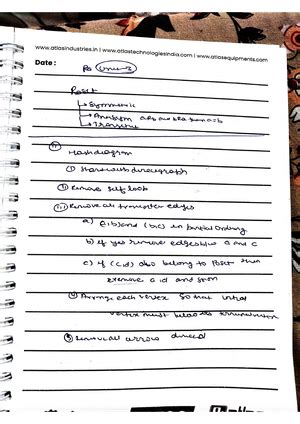 www.atlasindustries.in | www.atlastechnologiesindia.com | www.atlasequipments.com
Date :
Unit-3
Poset
Symmetric
Antisym aRb and bRa then a=b
Transitive
Hash diagram
① Start with directed graph
② Remove self loop
Remove all transitive edges
a) (a,b) and (b,c) in Partial Ordering
b) If yes remove edges b/w a and c
c) if (c,d) also belong to Poset then
remove a,d and soon
Arrange each vertex so that initial
vertex must below its
⑤ Remove all arrow